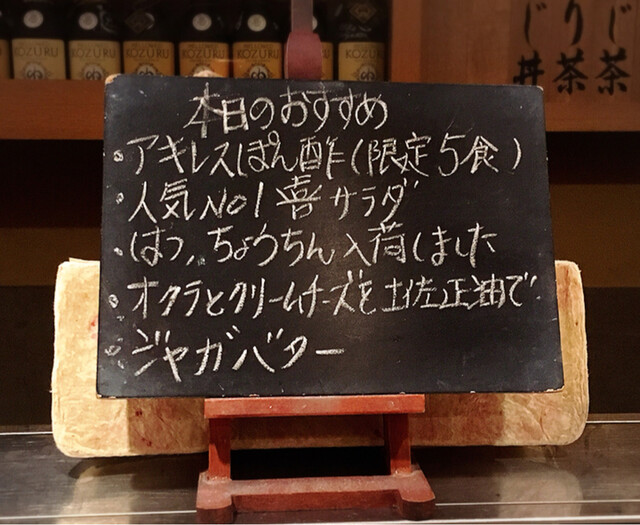 KOZURU KOZURU KOZURU KOZURU KOZURU
じ り じ
丼 茶 茶
本日のおすすめ
・アキレスぽん酢(限定5食)
・人気No1喜サラダ
・はつ,ちょうちん入荷しました
・オクラとクリームチーズを土佐正油で
・ジャガバター